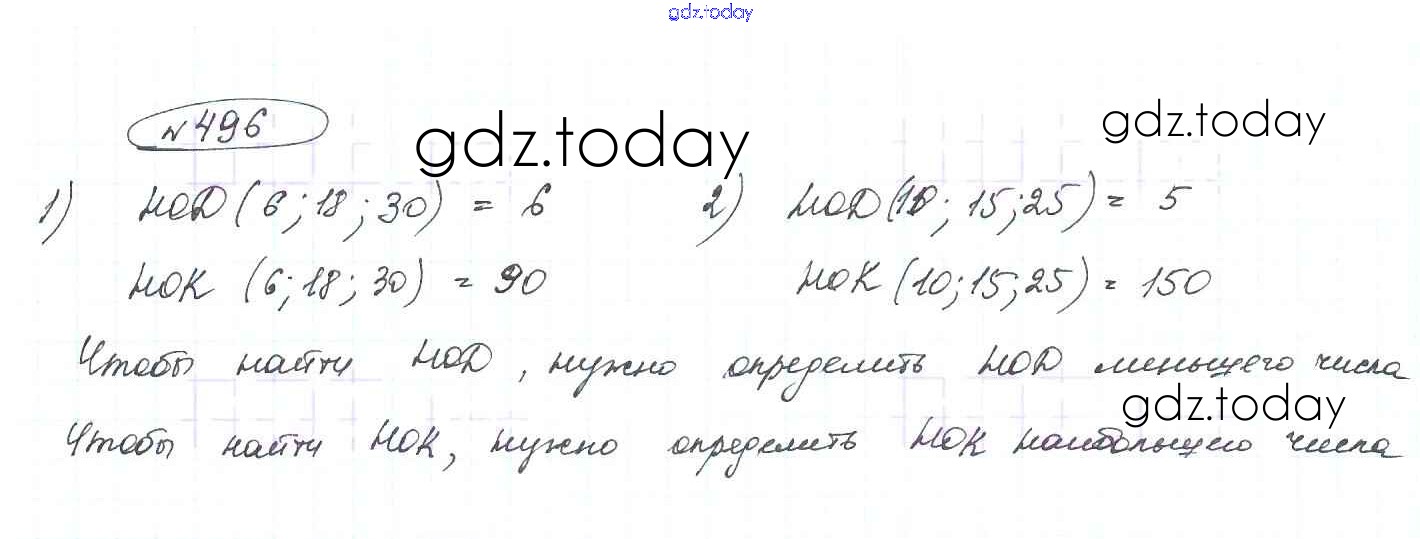 gdz.today
№ 496
gdz.today
gdz.today
1) НОД (6; 18; 30) = 6 2) НОД (10; 15; 25) = 5
НОК (6; 18; 30) = 90 НОК (10; 15; 25) = 150
Чтобы найти НОД, нужно определить НОД меньшего числа
gdz.today
Чтобы найти НОК, нужно определить НОК наибольшего числа